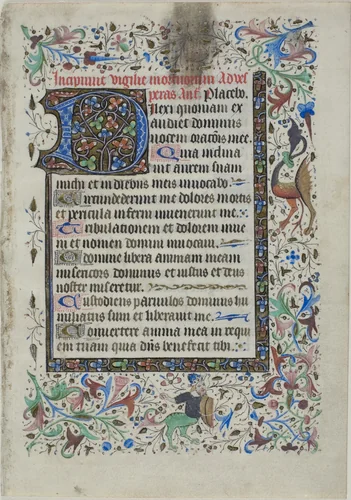 Incipiunt vigilie mortuorum Ad ves
peras ant. Placebo.
Dilexi quoniam ex
audiet dominus
vocem orationis mee.
Quia inclina
uit aurem suam
michi et in diebus meis inuocabo.
Circumdederunt me dolores mortis
et pericula inferni inuenerunt me.
Tribulationem et dolorem inue
ni et nomen domini inuocaui.
O domine libera animam meam
misericors dominus et iustus et deus
noster miseretur.
Custodiens paruulos dominus hu
miliatus sum et liberauit me.
Conuertere anima mea in requi
em tuam quia dns benefecit tibi.